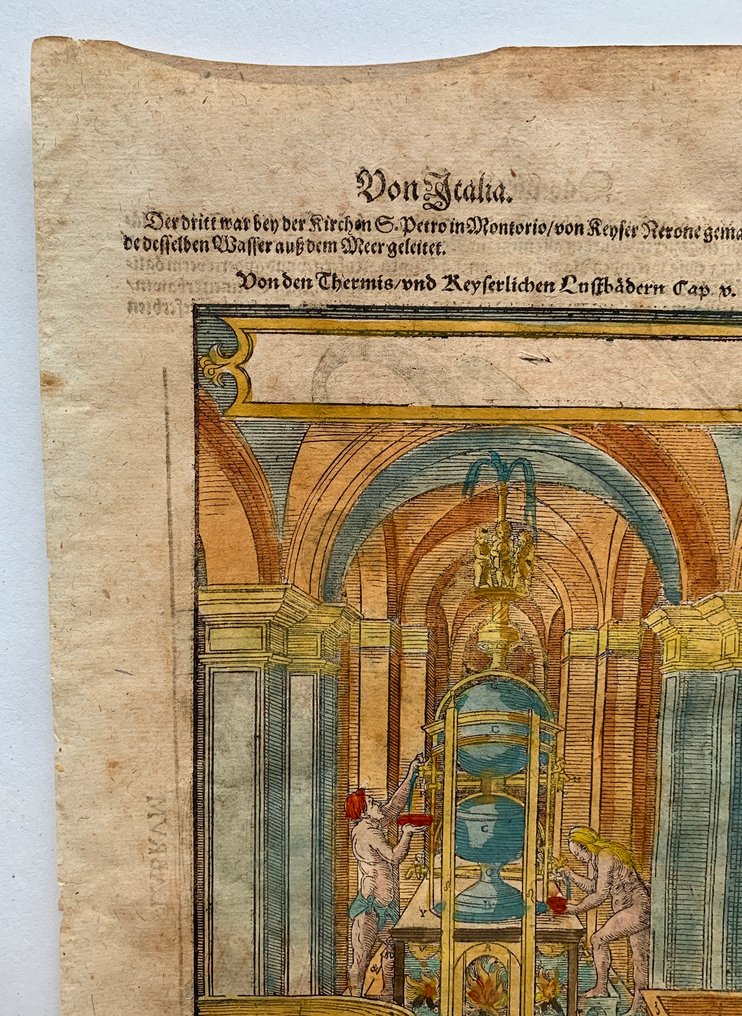 Von Italia.
Der dritt war bey der Kirchen S. Petro in Montorio/von Keyser Nerone gema
de desselben Wasser auß dem Meer geleitet.
Von den Thermis/vnd Keyserlichen Lustbädern Cap. v.
C
C
Y
A